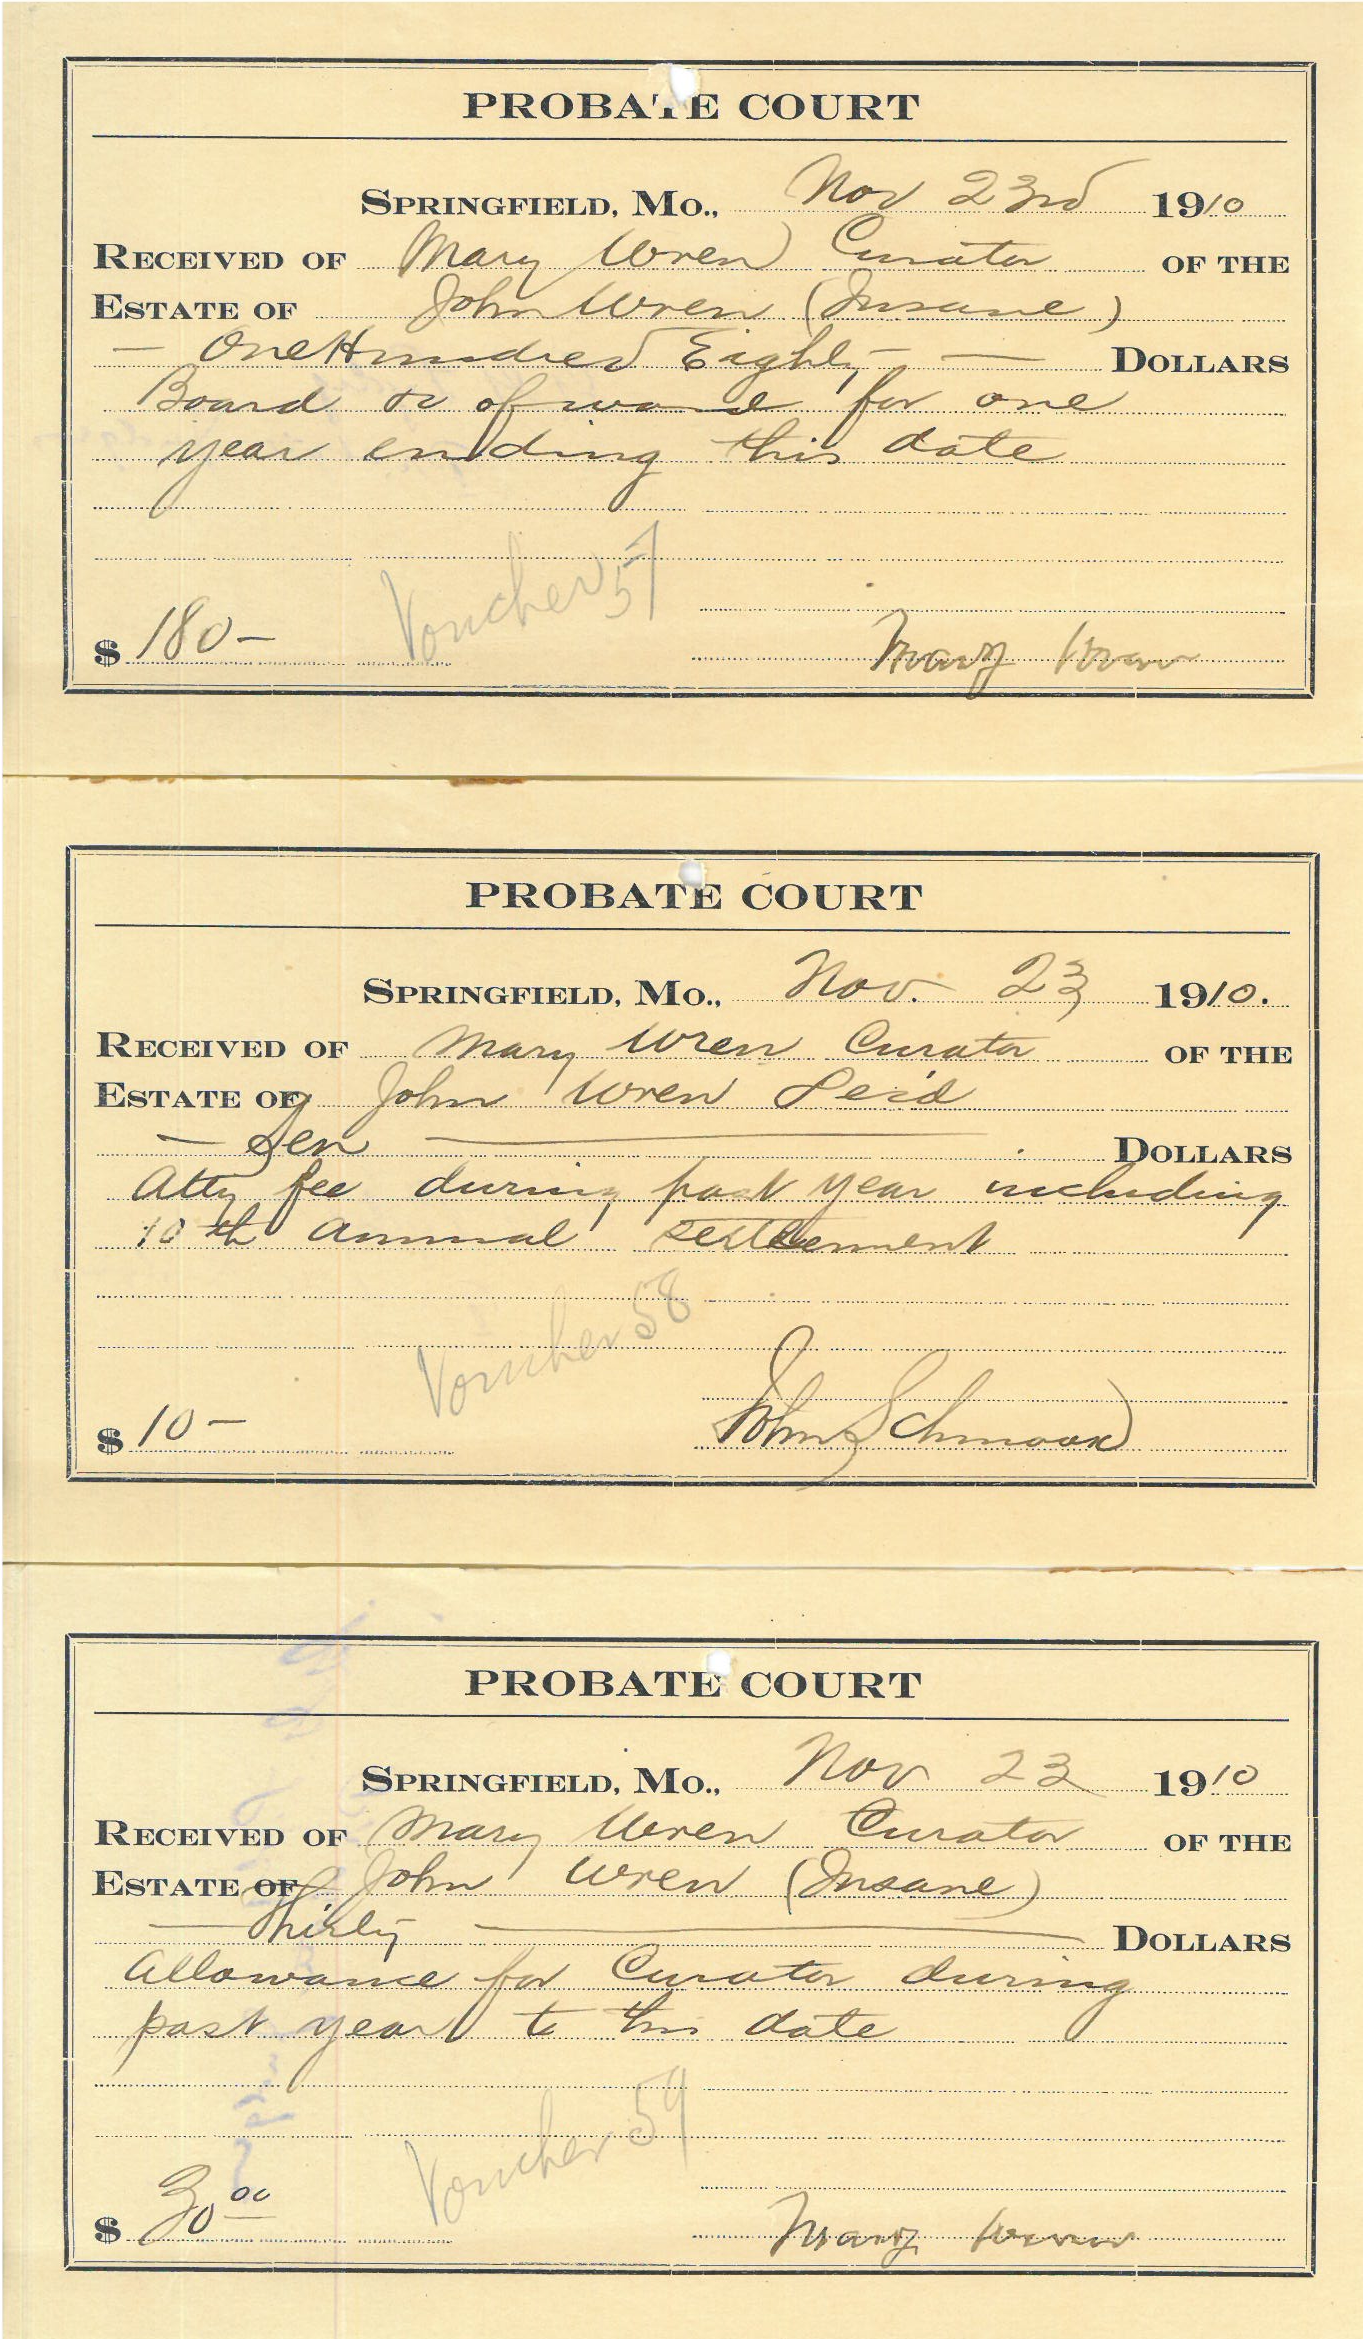 PROBATE COURT
SPRINGFIELD, MO., Nov 23rd 1910
RECEIVED OF Mary Wren Curator OF THE
ESTATE OF John Wren (Insane)
— One Hundred Eighty — — DOLLARS
Board &c of ward for one
year ending this date
Voucher 57
$ 180— Mary Wren
PROBATE COURT
SPRINGFIELD, MO., Nov. 23 1910.
RECEIVED OF Mary Wren Curator OF THE
ESTATE OF John Wren
— Ten — DOLLARS
Atty fee during past year including
10th Annual settlement
Voucher 58
$ 10— John Schmook
PROBATE COURT
SPRINGFIELD, MO., Nov 23 1910
RECEIVED OF Mary Wren Curator OF THE
ESTATE OF John Wren (Insane)
— Thirty — DOLLARS
Allowance for Curator during
past year to this date
Voucher 59
$ 30.00 Mary Wren